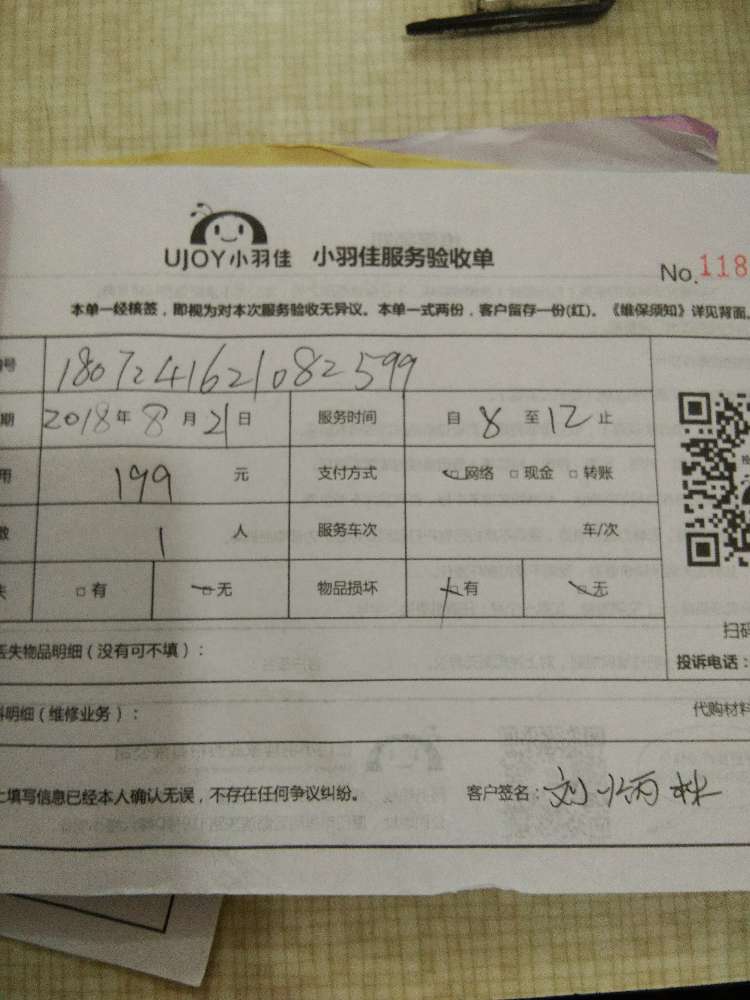 UJOY小羽佳 小羽佳服务验收单
No.118
本单一经核签，即视为对本次服务验收无异议。本单一式两份，客户留存一份(红)。《维保须知》详见背面。
号 1807241621082599
期 2018年8月21日 服务时间 自8至12止
用 199元 支付方式 网络 现金 转账
数 1人 服务车次 车/次
失 有 无 物品损坏 有 无
扫码
丢失物品明细（没有可不填）： 投诉电话：
料明细（维修业务）： 代购材料
上填写信息已经本人确认无误，不存在任何争议纠纷。 客户签名：刘炳林